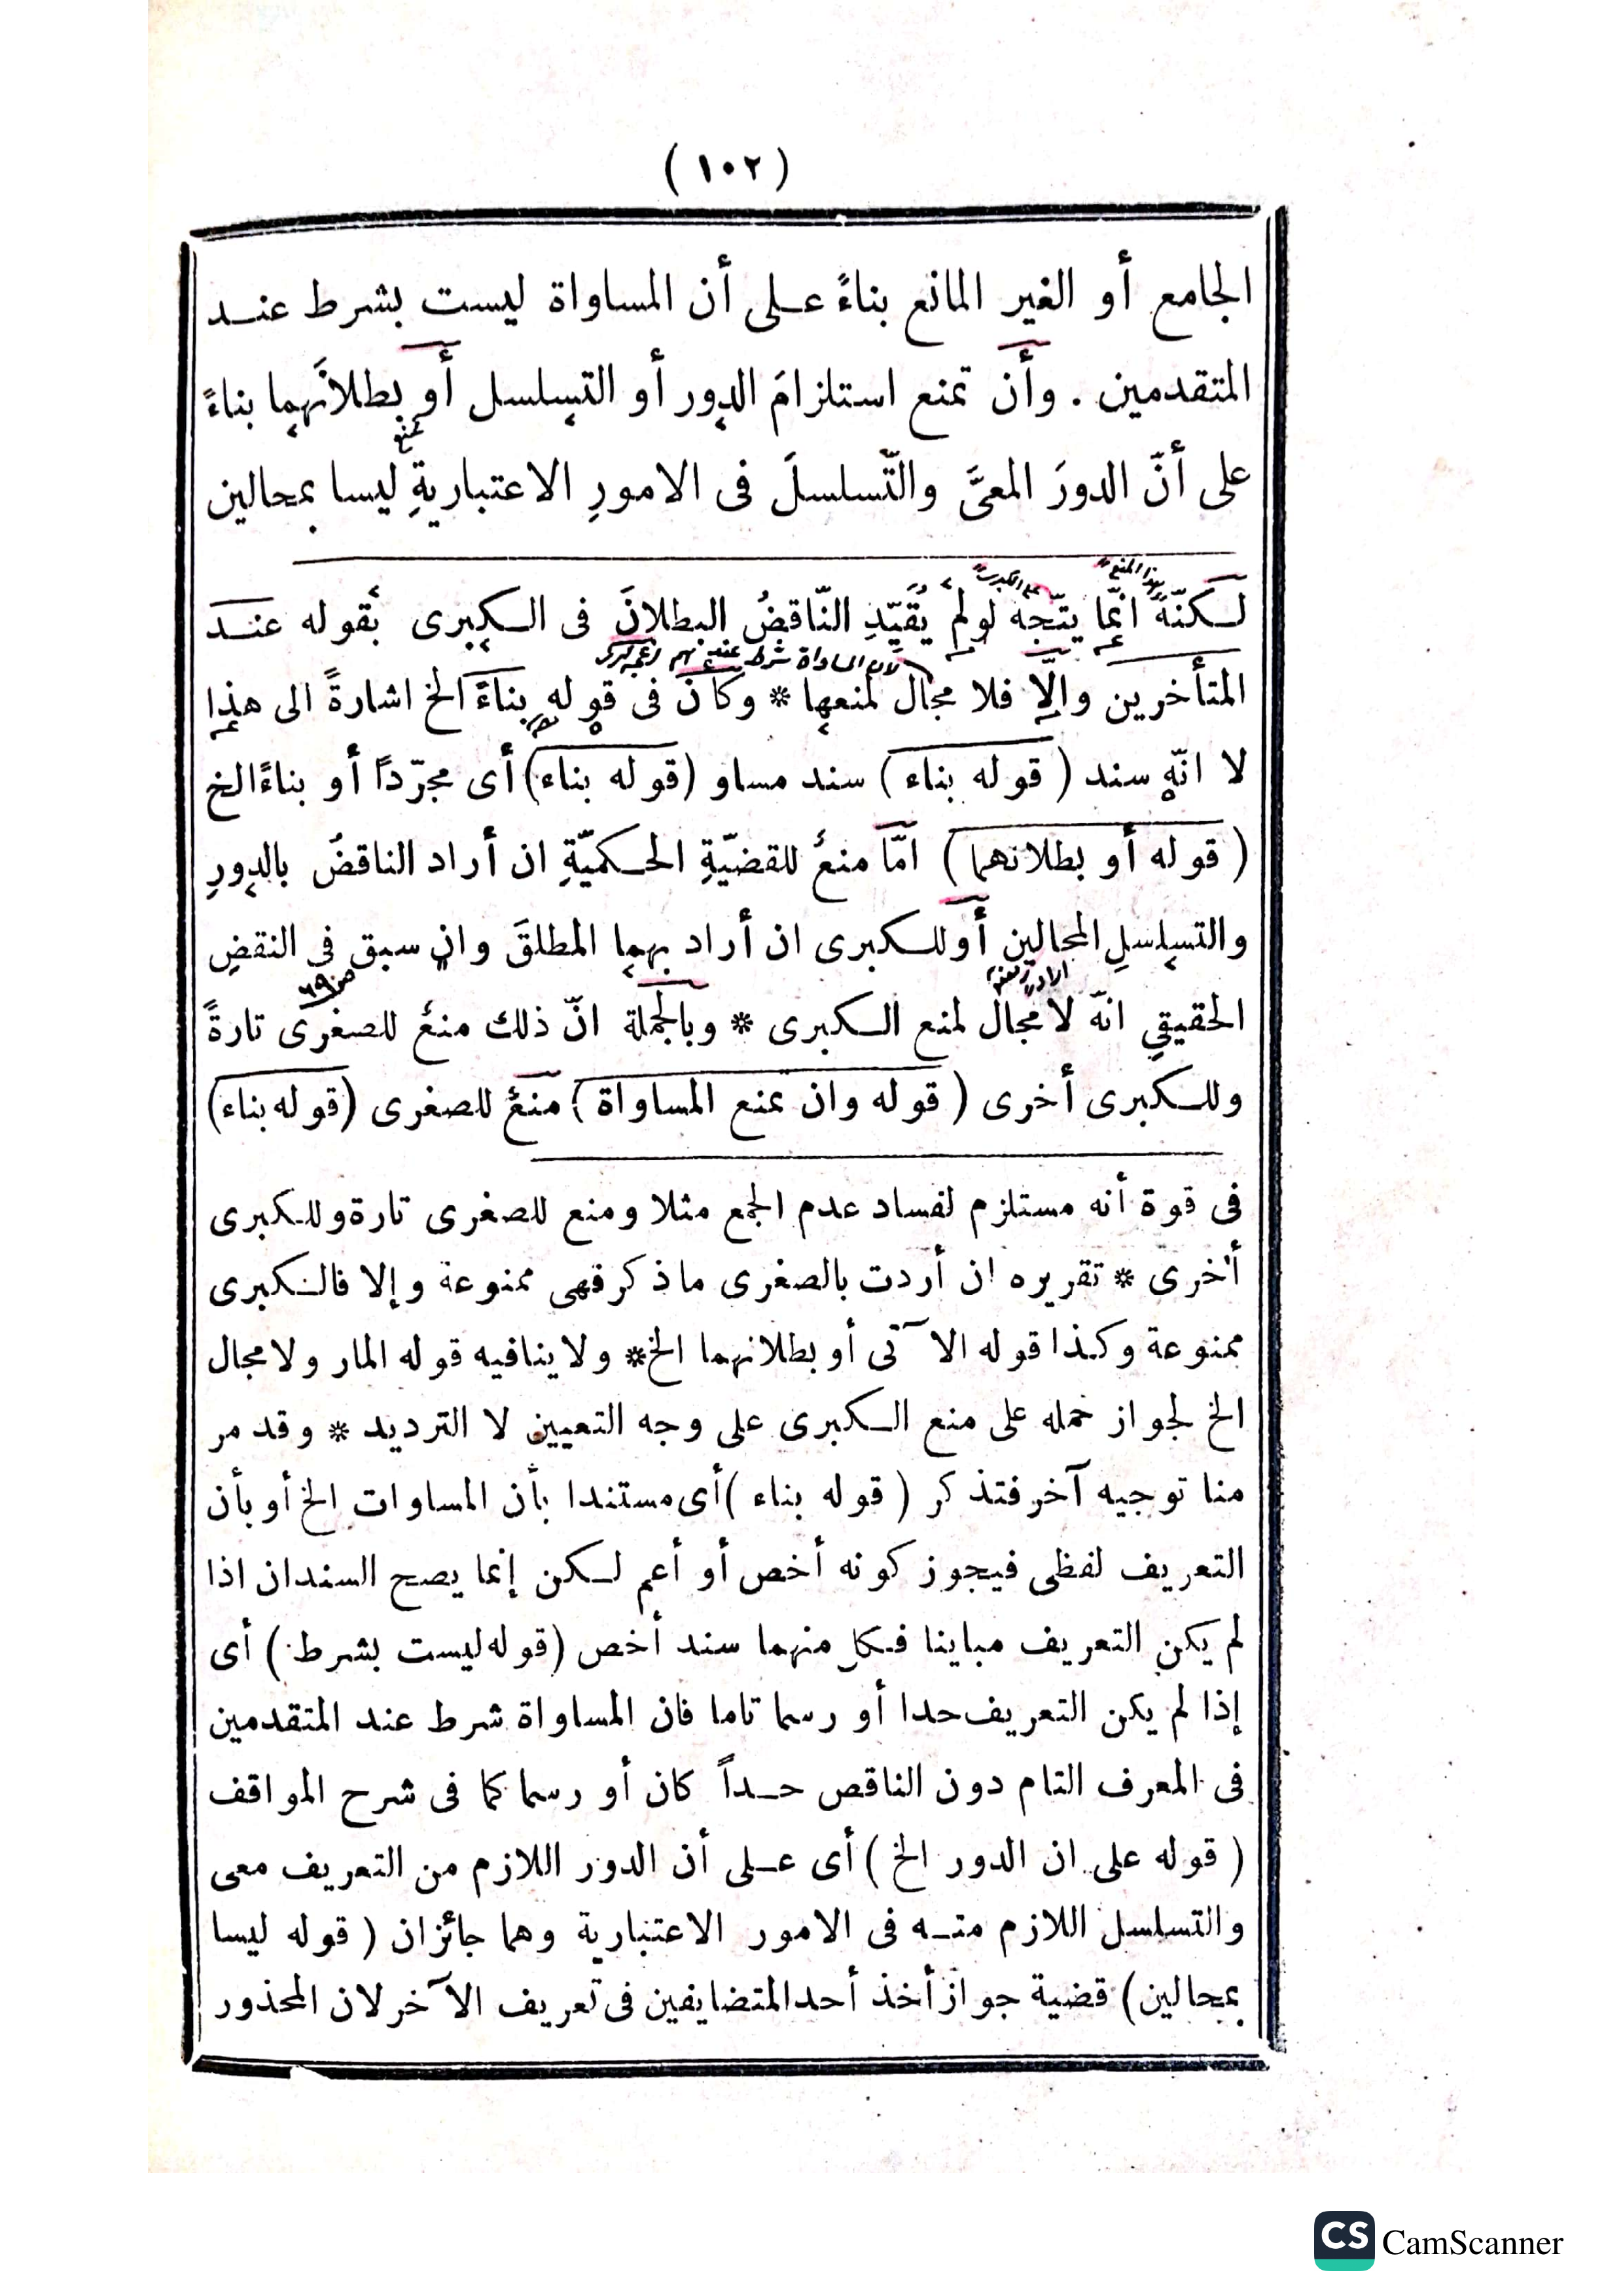 (١٠٢)
الجامع أو الغير المانع بناءً عـلى أن المساواة ليست بشرط عنـد
المتقدمين . وأن تمنع استلزامَ الدور أو التسلسل أو بطلانَهما بناءً
على أنّ الدورَ المعىَّ والتّسلسلَ فى الامورِ الاعتباريةِ ليسا بمحالين
لـكنّهُ انّما يتّجه لولم يُقَيّدِ النّاقضُ البطلانَ فى الـكبرى بقوله عنـد
المتأخرين والّا فلا مجال لمنعها * وكأنّ فى قوله بناءً الخ اشارةً الى هذا
لا انّه سند (قوله بناء) سند مساو (قوله بناء) أى مجرّداً أو بناءً الخ
(قوله أو بطلانهما) امّا منعٌ للقضيّةِ الحـكميّةِ ان أراد الناقضُ بالدورِ
والتسلسلِ المحالين أو للـكبرى ان أراد بهما المطلقَ وان سبق فى النقضِ
الحقيقي انّه لا مجال لمنع الـكبرى * وبالجملة انّ ذلك منعٌ للصغرى تارةً
وللـكبرى أخرى (قوله وان تمنع المساواة) منعٌ للصغرى (قوله بناء)
فى قوة أنه مستلزم لفساد عدم الجمع مثلا ومنع للصغرى تارة وللكبرى
أخرى * تقريره ان أردت بالصغرى ما ذكر فهى ممنوعة وإلا فالـكبرى
ممنوعة وكذا قوله الآتى أو بطلانهما الخ * ولا ينافيه قوله المار ولا مجال
الخ لجواز حمله على منع الـكبرى على وجه التعيين لا الترديد * وقد مر
منا توجيه آخر فتذكر (قوله بناء) أى مستندا بأن المساوات الخ أو بأن
التعريف لفظى فيجوز كونه أخص أو أعم لـكن إنما يصح السندان اذا
لم يكن التعريف مباينا فكل منهما سند أخص (قوله ليست بشرط) أى
إذا لم يكن التعريف حدا أو رسما تاما فان المساواة شرط عند المتقدمين
فى المعرف التام دون الناقص حـداً كان أو رسما كما فى شرح المواقف
(قوله على ان الدور الخ) أى عـلى أن الدور اللازم من التعريف معى
والتسلسل اللازم منـه فى الامور الاعتبارية وهما جائزان (قوله ليسا
بمحالين) قضية جواز أخذ أحد المتضايفين فى تعريف الآخر لان المحذور
CS CamScanner